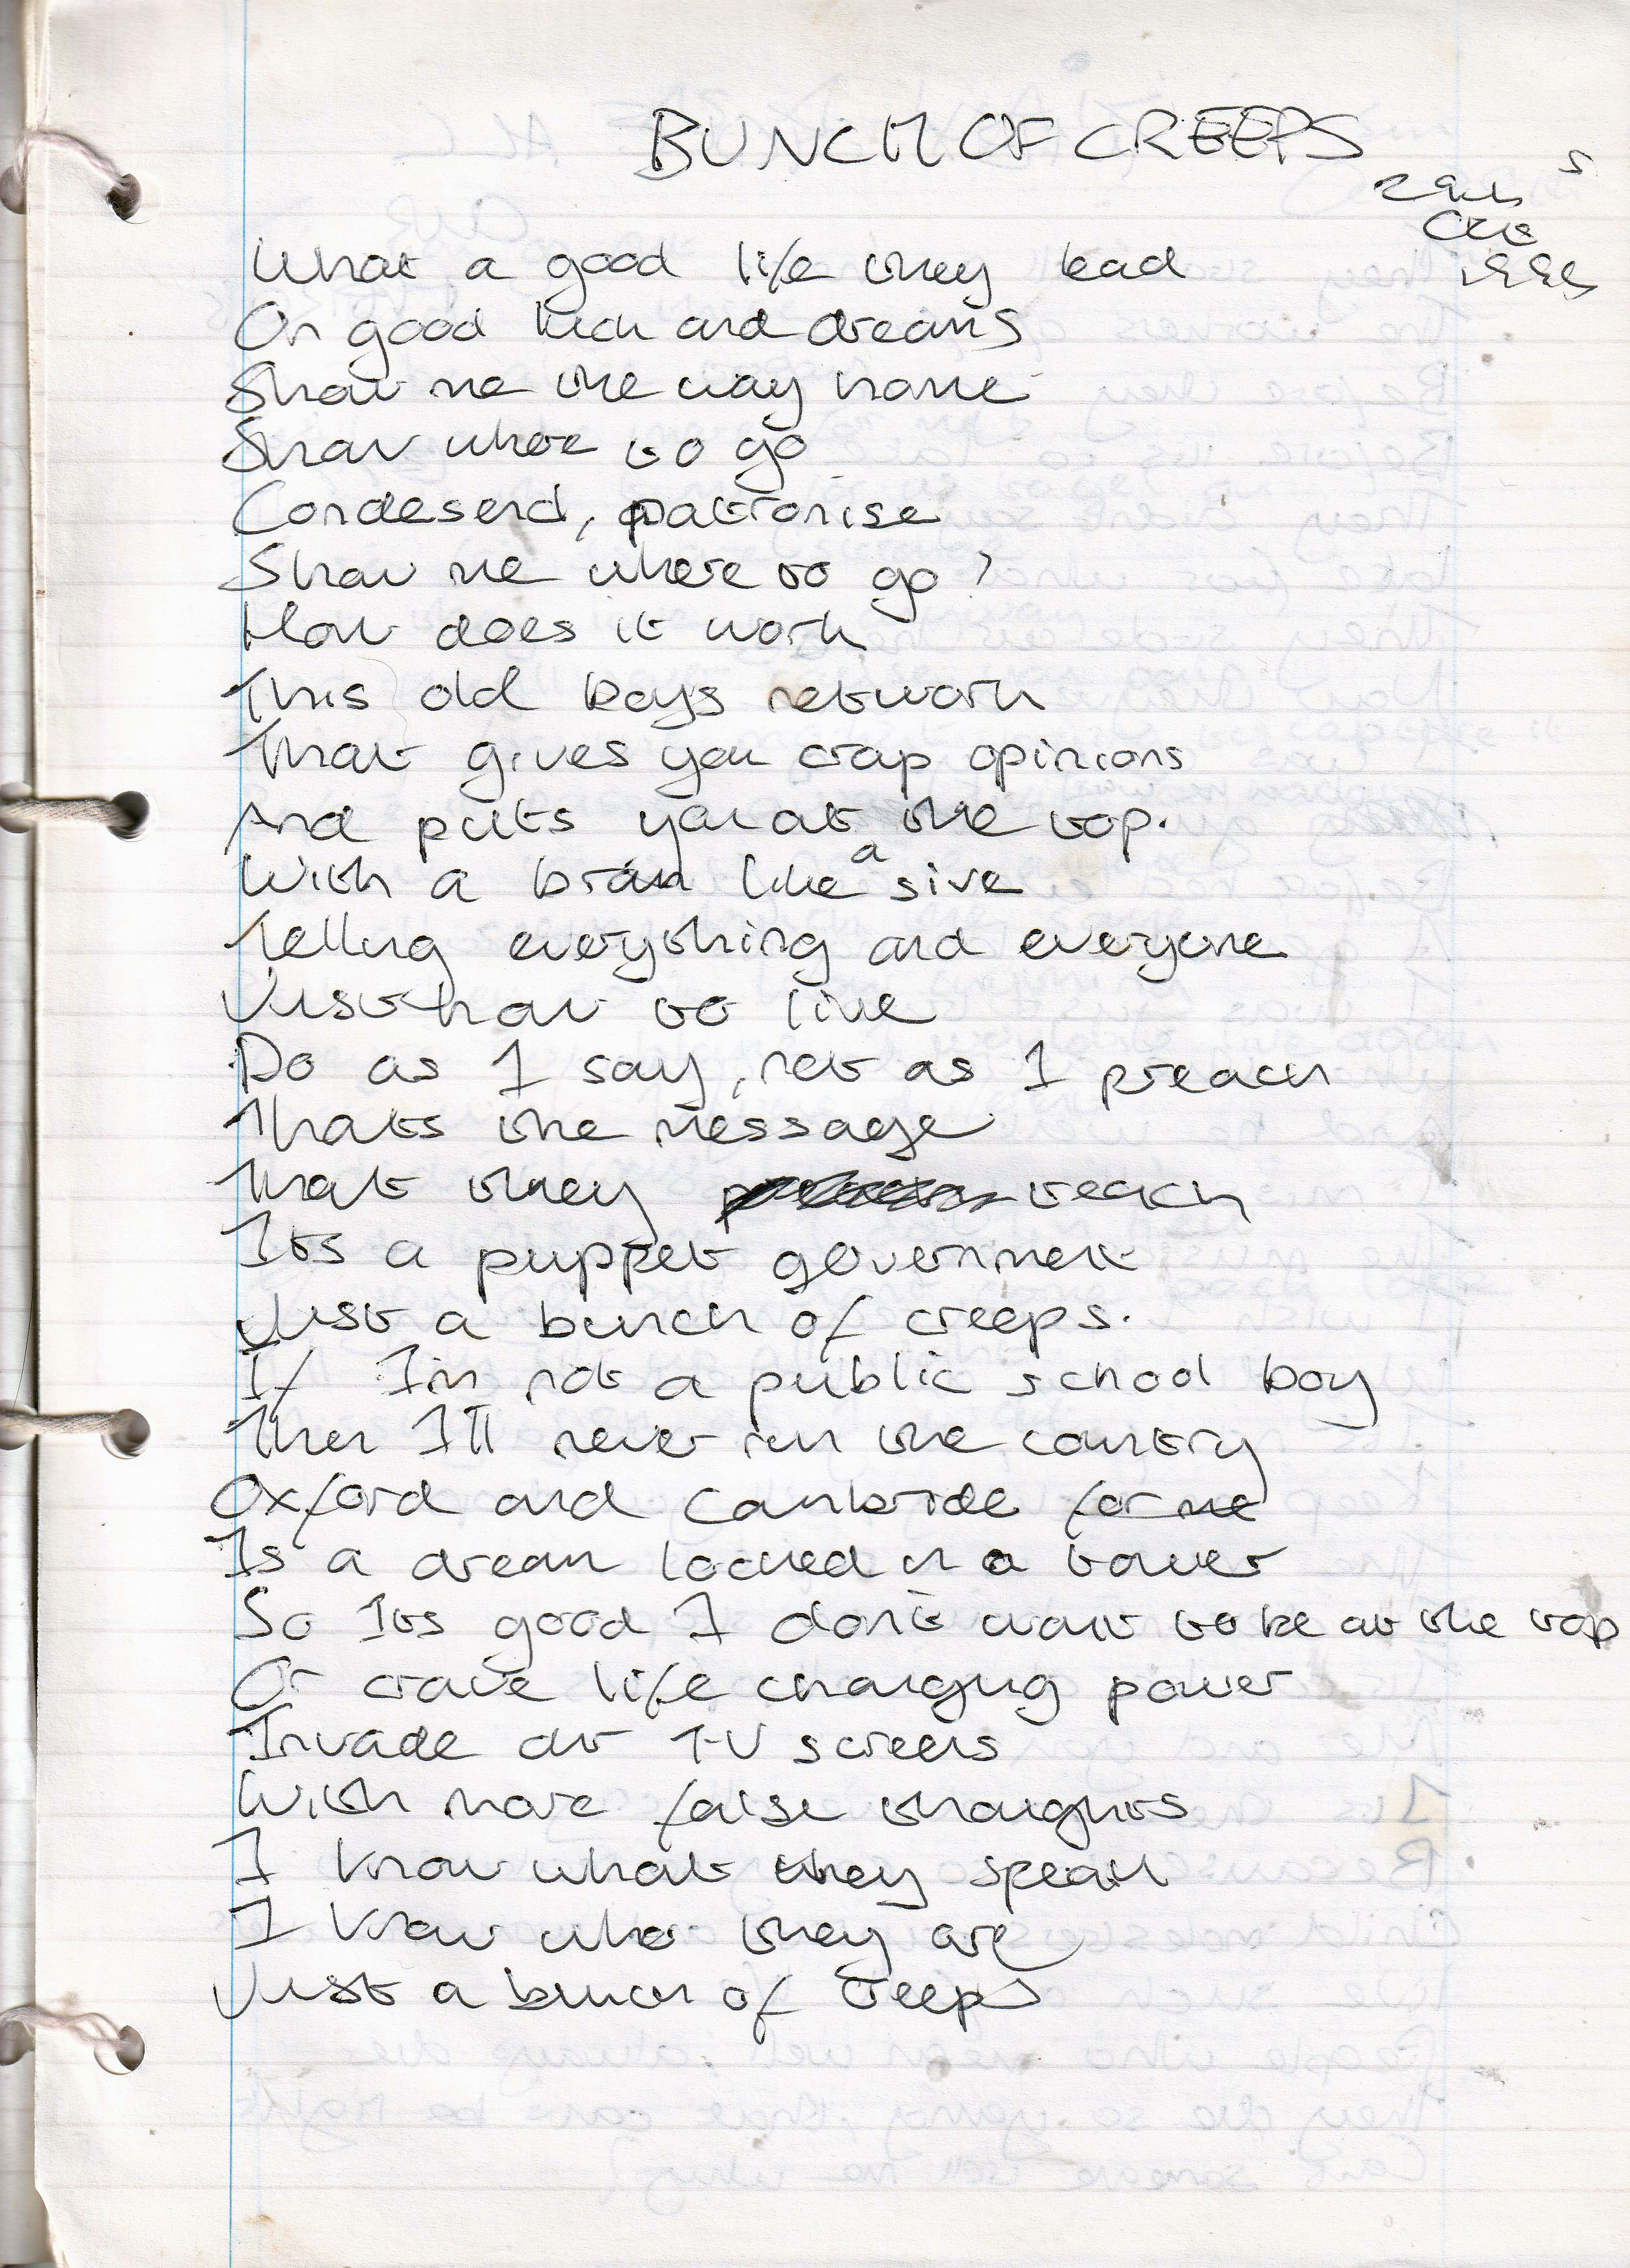 BUNCH OF CREEPS
S
29th
Oct
1995
What a good life they lead
On good luck and dreams
Show me the way home
Show where to go
Condesend, patronise
Show me where to go?
How does it work
This old boys network
That gives you crap opinions
And puts you at the top.
With a brain like a sive
Telling everything and everyone
Just how to live
Do as I say, not as I preach
Thats the message
That they teach
Its a puppet government
Just a bunch of creeps.
If Im not a public school boy
Then I'll never run the country
Oxford and Cambride for me
Is a dream locked in a tower
So Its good I don't want to be at the top
Or crave life changing power
Invade our T-V screens
With more false thoughts
I know what they speak
I know who they are
Just a bunch of creeps